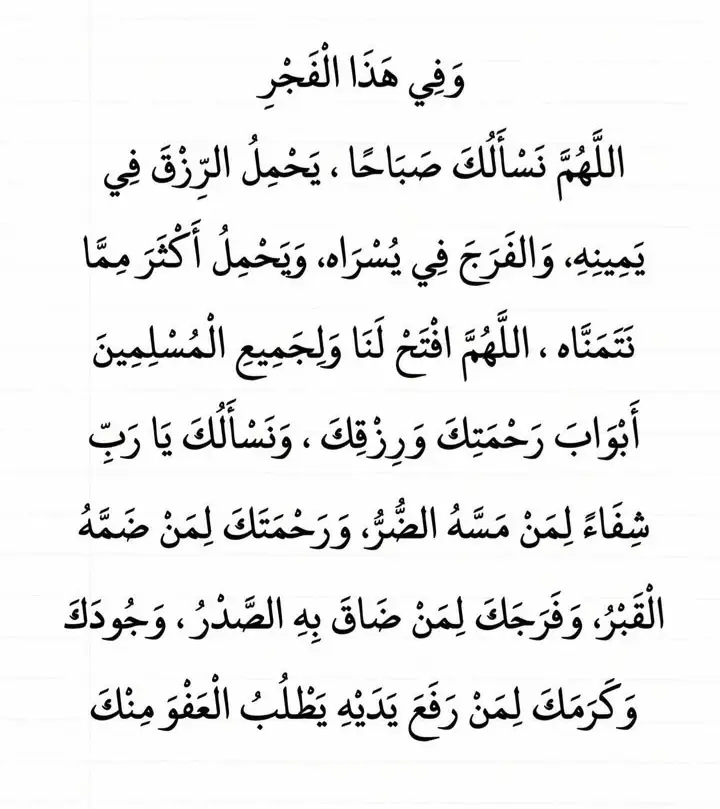 وَفِي هَذَا الْفَجْرِ
اللَّهُمَّ نَسْأَلُكَ صَبَاحًا ، يَحْمِلُ الرِّزْقَ فِي
يَمِينِهِ، وَالفَرَجَ فِي يُسْرَاه، وَيَحْمِلُ أَكْثَرَ مِمَّا
نَتَمَنَّاه ، اللَّهُمَّ افْتَحْ لَنَا وَلِجَمِيعِ الْمُسْلِمِينَ
أَبْوَابَ رَحْمَتِكَ وَرِزْقِكَ ، وَنَسْأَلُكَ يَا رَبِّ
شِفَاءً لِمَنْ مَسَّهُ الضُّرُّ، وَرَحْمَتَكَ لِمَنْ ضَمَّهُ
الْقَبْرُ، وَفَرَجَكَ لِمَنْ ضَاقَ بِهِ الصَّدْرُ ، وَجُودَكَ
وَكَرَمَكَ لِمَنْ رَفَعَ يَدَيْهِ يَطْلُبُ الْعَفْوَ مِنْكَ